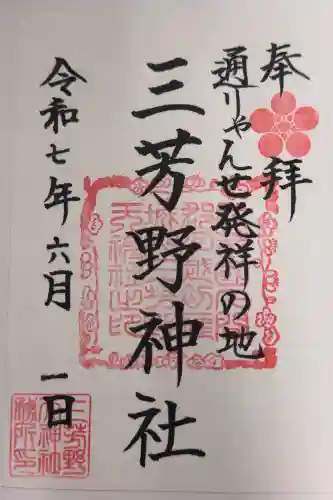 奉拝
通りゃんせ発祥の地
三芳野神社
令和七年六月一日
三芳野
神社